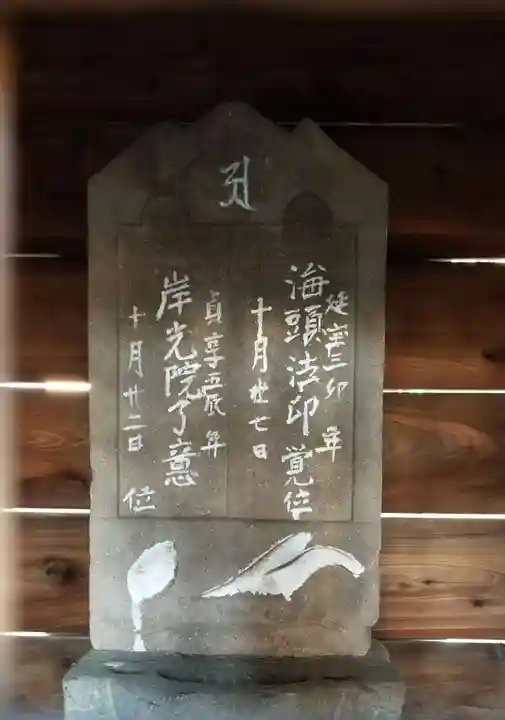 延宝三卯年
海頭法印覚位
十月廿七日
貞享五辰年
岸光院了意
十月廿二日 位